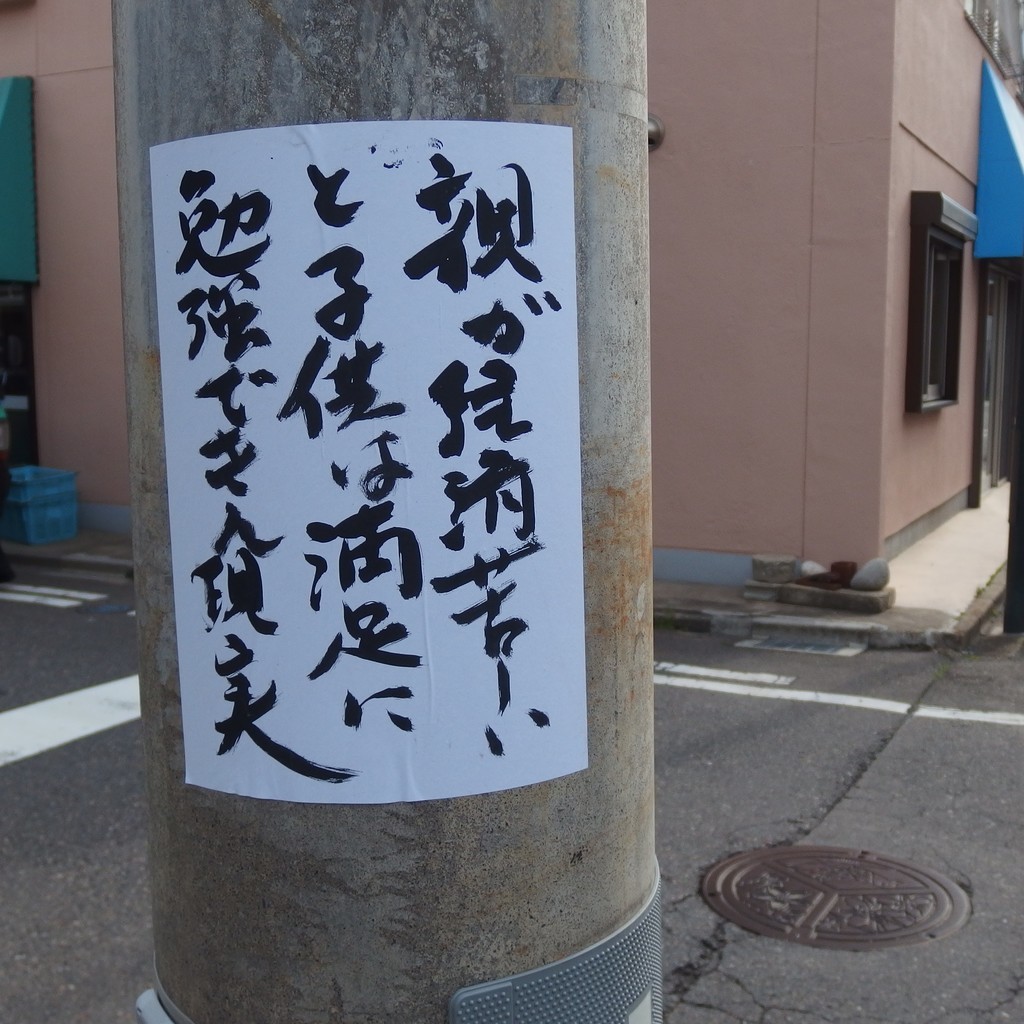 親が経済苦しい
と子供は満足に
勉強できん現実